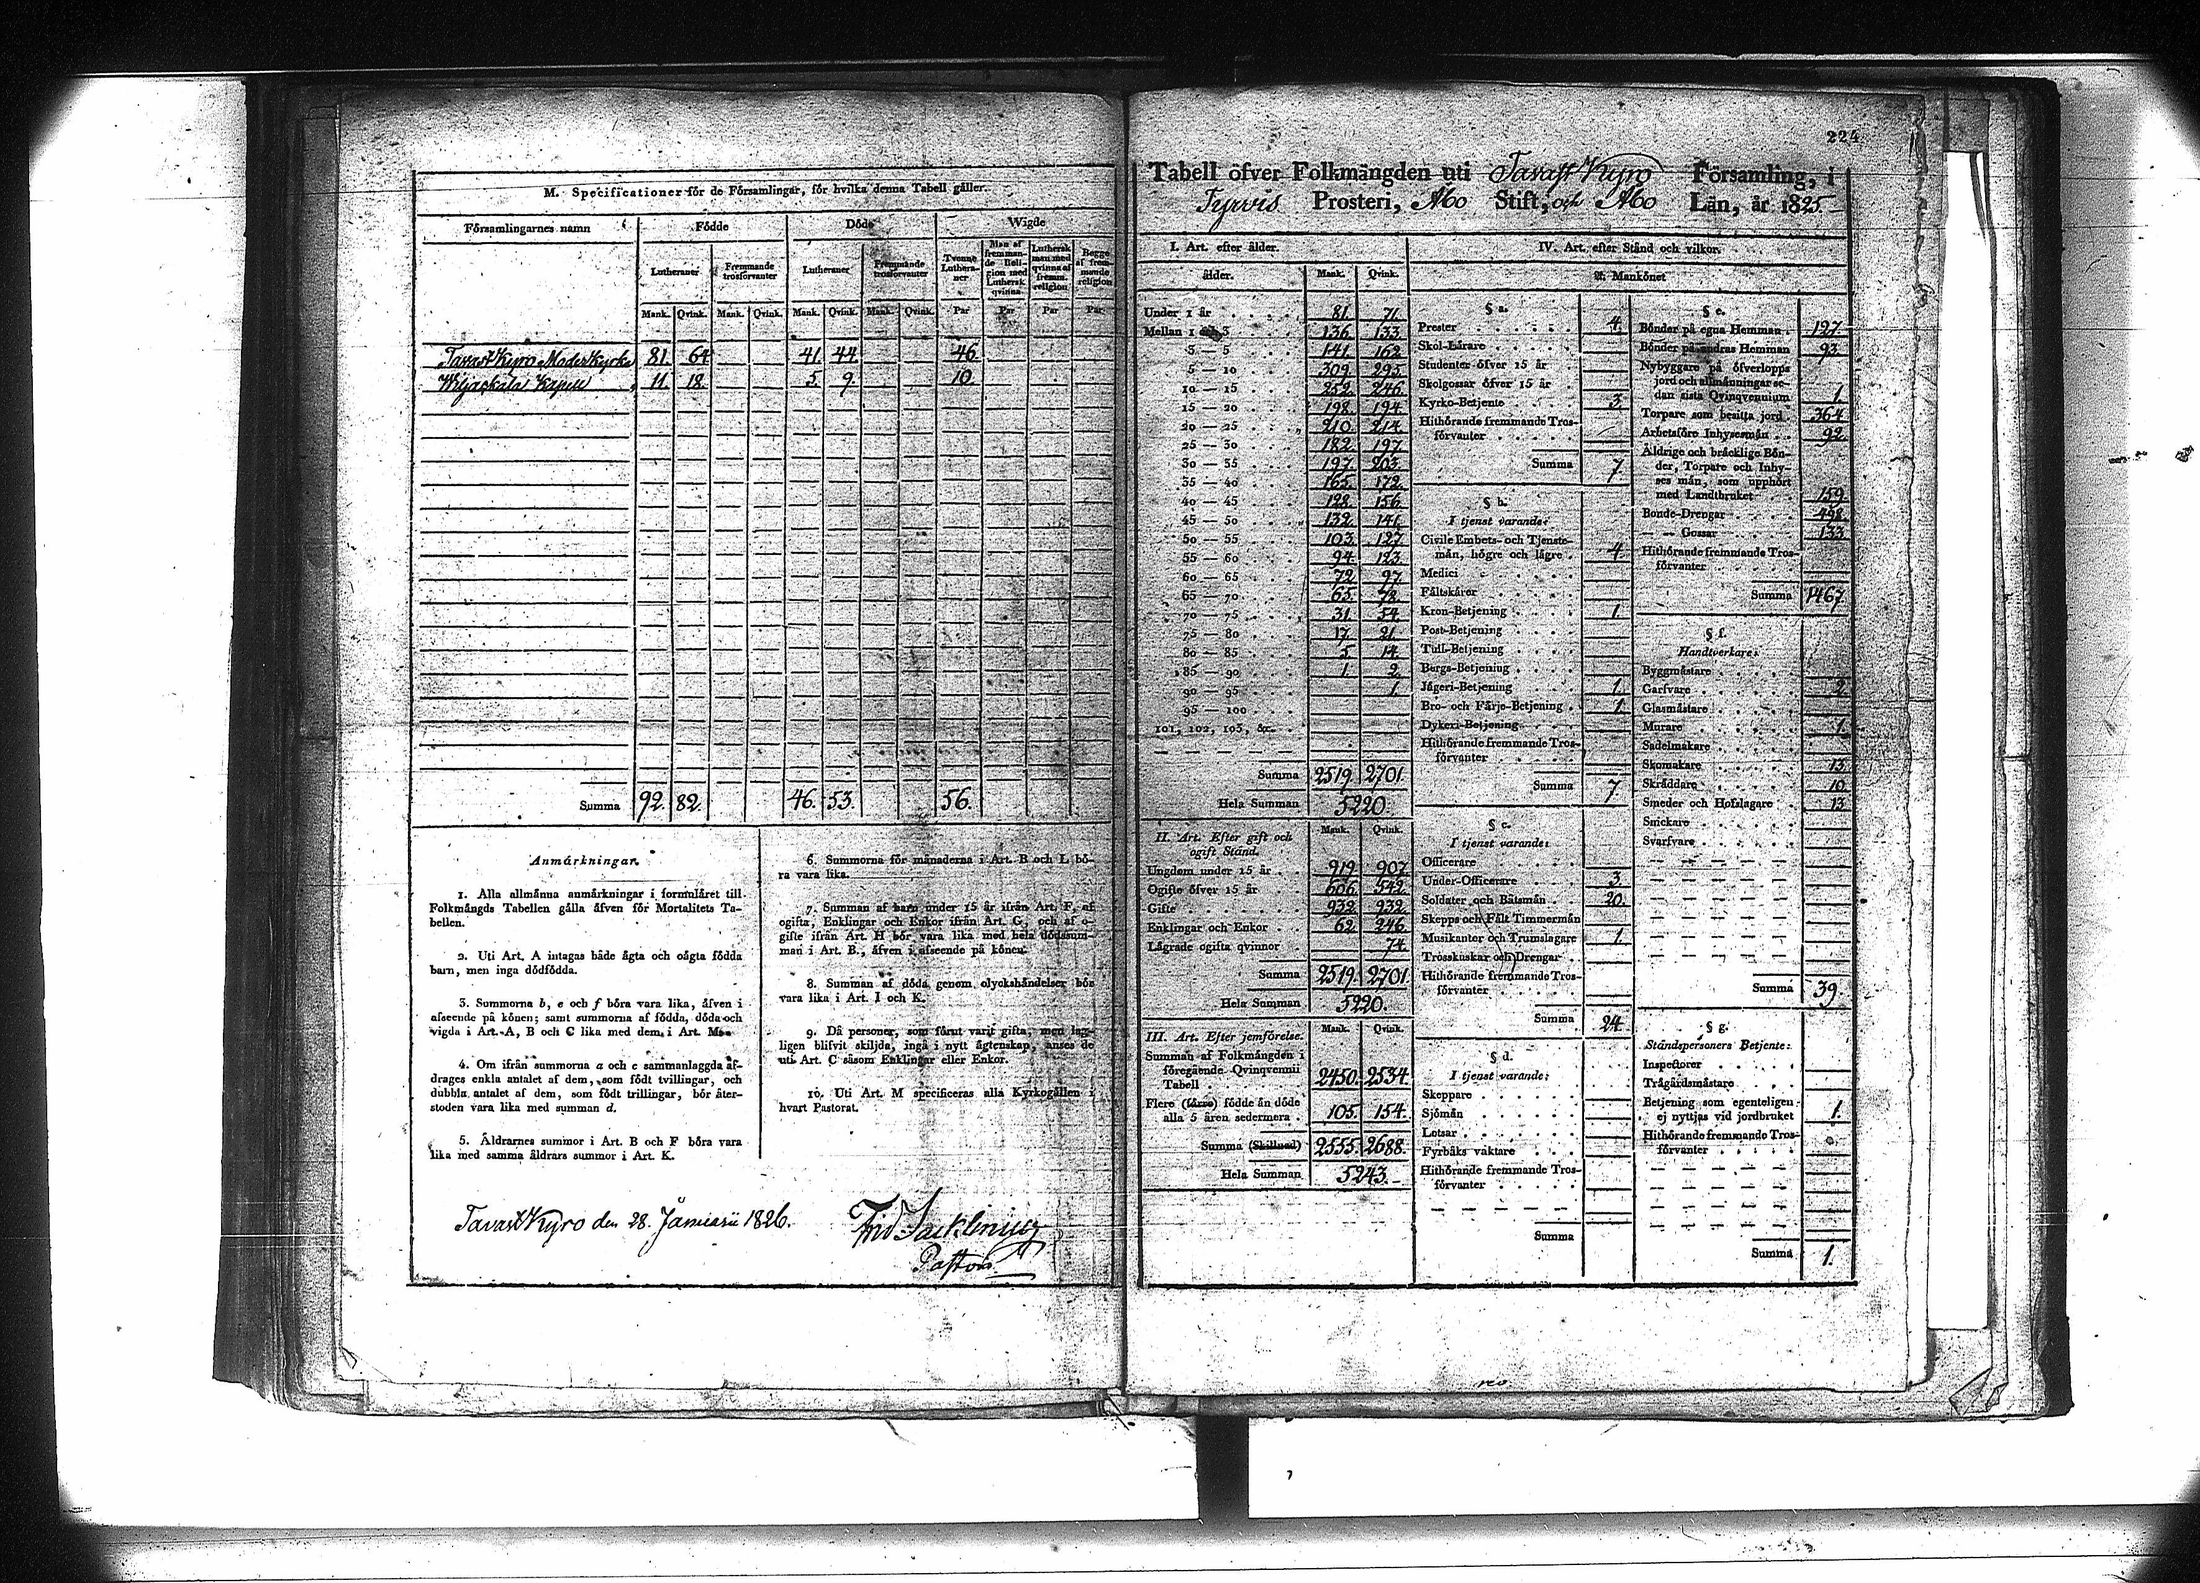 M. Specificationer för de Församlingar, för hvilka denna Tabell gäller.
Församlingarnes namn Födde Döde Wigde
Lutheraner Fremmande trosförvanter Lutheraner Fremmande trosförvanter Tvenne Lutheraner Man af fremmande Religion med Luthersk qvinna Luthersk man med qvinna af fremm. religion Begge af fremmande religion
Mank. Qvink. Mank. Qvink. Mank. Qvink. Mank. Qvink. Par Par Par Par
TavastKyro Moderkyrka 81. 64 41. 44. 46.
Wiljackala Kapell 11. 18. 5. 9. 10.
Summa 92. 82. 46. 53. 56.
Anmärkningar.
1. Alla allmänna anmärkningar i formuläret till
Folkmängds Tabellen gälla äfven för Mortalitets Ta-
bellen.
2. Uti Art. A intagas både ägta och oägta födda
barn, men inga dödfödda.
3. Summorna b, e och f böra vara lika, äfven i
afseende på könen; samt summorna af födda, döda och
vigda i Art. A, B och C lika med dem i Art. M.
4. Om ifrån summorna a och c sammanlagda af-
drages enkla antalet af dem, som födt tvillingar, och
dubbla antalet af dem, som födt trillingar, bör åter-
stoden vara lika med summan d.
5. Åldrarnes summor i Art. B och F böra vara
lika med samma åldrars summor i Art. K.
6. Summorna för månaderna i Art. B och L bö-
ra vara lika.
7. Summan af barn under 15 år ifrån Art. F, af
ogifta, Enklingar och Enkor ifrån Art. G, och af o-
gifte ifrån Art. H bör vara lika med hela dödssum-
man i Art. B., äfven i afseende på könen.
8. Summan af döda genom olyckshändelser bör
vara lika i Art. I och K.
9. Då personer, som förut varit gifta, men lag-
ligen blifvit skiljda, ingå i nytt ägtenskap, anses de
uti Art. C såsom Enklingar eller Enkor.
10. Uti Art. M specificeras alla Kyrkogällen i
hvart Pastorat.
TavastKyro den 28. Januarii 1826.
Pastor
224
Tabell öfver Folkmängden uti Tavast Kyro Församling, i
Tyrvis Prosteri, Abo Stift, och Abo Län, år 1825.
I. Art. efter ålder.
ålder. Mank. Qvink.
Under 1 år 81. 71.
Mellan 1 och 3 136. 133.
3 — 5 141. 162.
5 — 10 309. 295.
10 — 15 252. 246.
15 — 20 198. 194.
20 — 25 210. 214.
25 — 30 182. 197.
30 — 35 197. 203.
35 — 40 165. 172.
40 — 45 128. 156.
45 — 50 132. 141.
50 — 55 103. 127.
55 — 60 94. 123.
60 — 65 72. 97.
65 — 70 65. 78.
70 — 75 31. 54.
75 — 80 17. 21.
80 — 85 5 14.
85 — 90 1. 2.
90 — 95 1.
95 — 100
101, 102, 103, &c.
Summa 2519. 2701.
Hela Summan 5220.
II. Art. Efter gift och
ogift Stånd. Mank. Qvink.
Ungdom under 15 år 919. 907.
Ogifte öfver 15 år 606. 542.
Gifte 932. 932.
Enklingar och Enkor 62. 246.
Lägrade ogifta qvinnor 74.
Summa 2519. 2701.
Hela Summan 5220.
III. Art. Efter jemförelse. Mank. Qvink.
Summan af Folkmängden i
föregående Qvinqvennii
Tabell 2450. 2534.
Flere (färre) födde än döde
alla 5 åren sedermera 105. 154.
Summa (Skillnad) 2555. 2688.
Hela Summan 5243.
IV. Art. efter Stånd och vilkor.
A. Mankönet
§ a.
Prester 4.
Skol-Lärare
Studenter öfver 15 år
Skolgossar öfver 15 år
Kyrko-Betjente 3.
Hithörande fremmande Tros-
förvanter
Summa 7.
§ b.
I tjenst varande:
Civile Embets- och Tjenste-
män, högre och lägre 4.
Medici
Fältskärer
Kron-Betjening 1.
Post-Betjening
Tull-Betjening
Bergs-Betjening
Jägeri-Betjening 1.
Bro- och Färje-Betjening 1.
Dykeri-Betjening
Hithörande fremmande Tros-
förvanter
Summa 7
§ c.
I tjenst varande:
Officerare
Under-Officerare 3.
Soldater och Båtsmän 20.
Skepps och Fält Timmermän
Musikanter och Trumslagare 1.
Trosskuskar och Drengar
Hithörande fremmande Tros-
förvanter
Summa 24.
§ d.
I tjenst varande:
Skeppare
Sjömän
Lotsar
Fyrbåks vaktare
Hithörande fremmande Tros-
förvanter
Summa
§ e.
Bönder på egna Hemman 127.
Bönder på andras Hemman 93.
Nybyggare på öfverlopps
jord och allmänningar se-
dan sista Qvinqvennium 1.
Torpare som besitta jord 364
Arbetsföre Inhysesmän 92.
Åldrige och bräcklige Bön-
der, Torpare och Inhy-
ses män, som upphört
med Landtbruket 159.
Bonde-Drengar 498.
— — Gossar 133.
Hithörande fremmande Tros-
förvanter
Summa 1467.
§ f.
Handtverkare:
Byggmästare
Garfvare 2.
Glasmästare
Murare 1.
Sadelmakare
Skomakare 13.
Skräddare 10.
Smeder och Hofslagare 13.
Snickare
Svarfvare
Summa 39.
§ g.
Ståndspersoners Betjente:
Inspectorer
Trägårdsmästare
Betjening som egenteligen
ej nyttjas vid jordbruket 1.
Hithörande fremmande Tros-
förvanter
Summa 1.